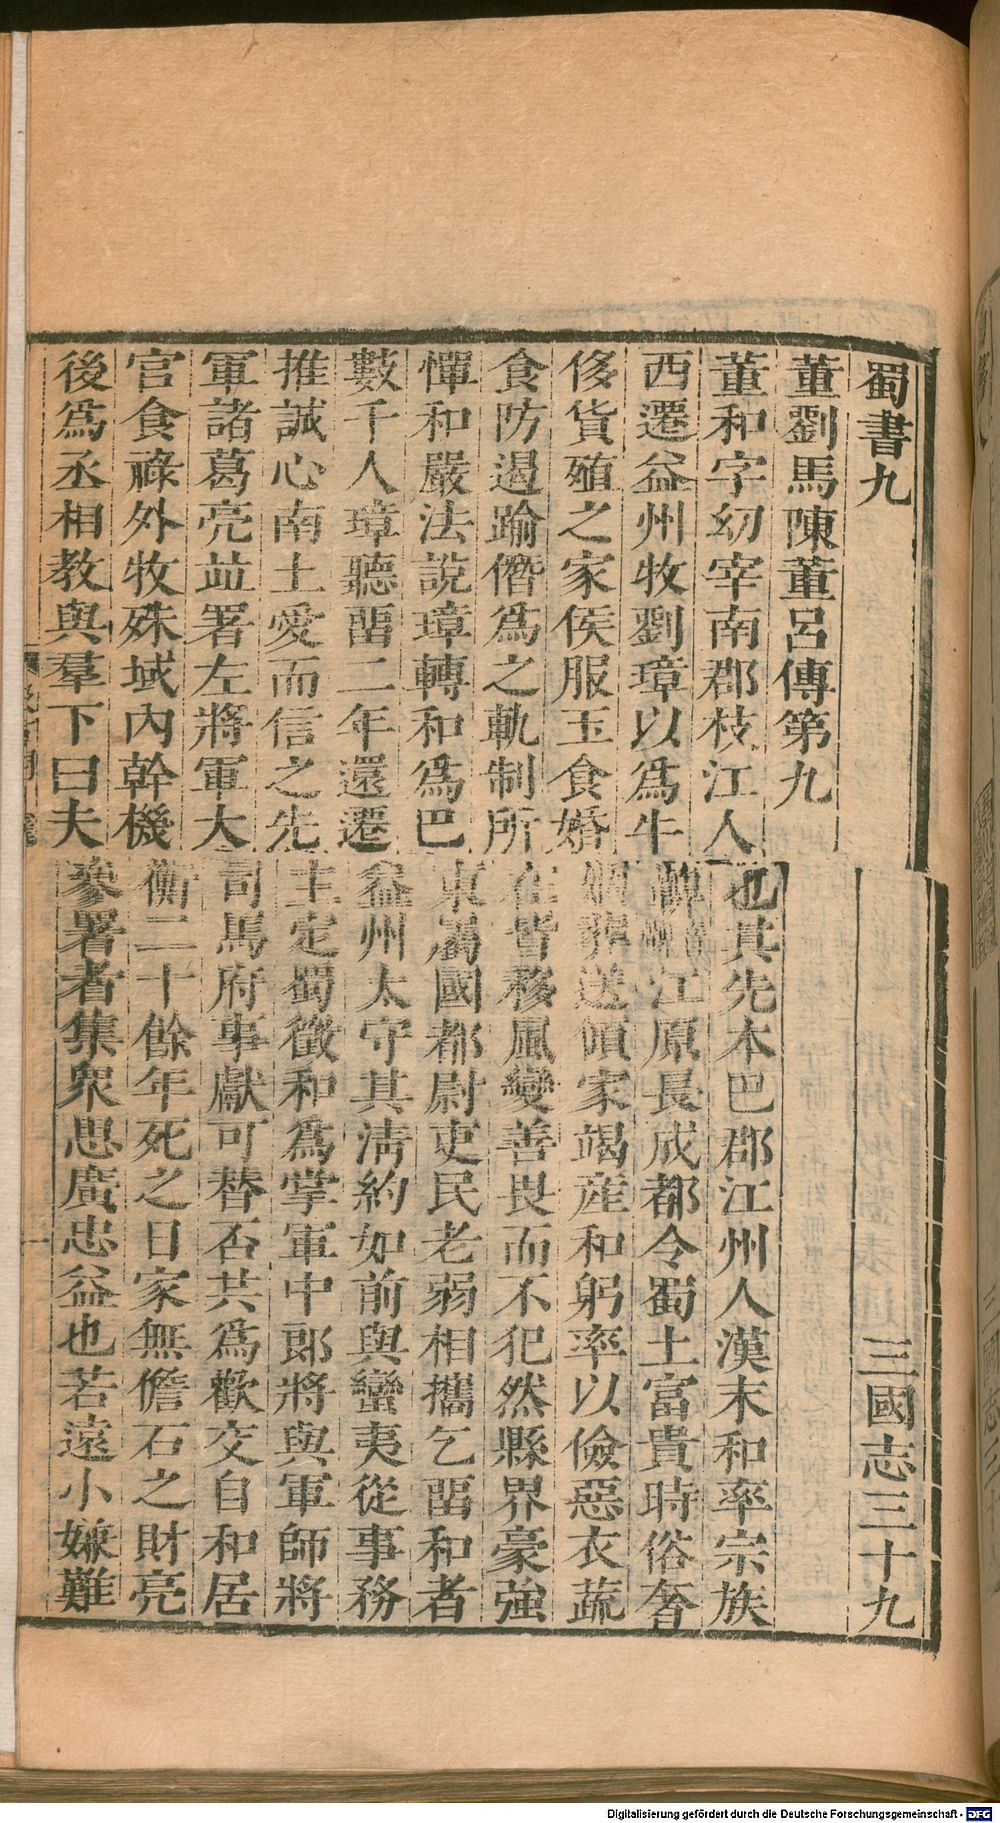 蜀書九 三國志三十九
董劉馬陳董呂傳第九
董和字幼宰南郡枝江人也其先本巴郡江州人漢末和率宗族
西遷益州牧劉璋以爲牛鞞江原長成都令蜀土富貴時俗奢
侈貨殖之家侯服玉食婚姻葬送傾家竭產和躬率以儉惡衣蔬
食防遏踰僭爲之軌制所在皆移風變善畏而不犯然縣界豪強
憚和嚴法說璋轉和爲巴東屬國都尉吏民老弱相攜乞畱和者
數千人璋聽畱二年還遷益州太守其清約如前與蠻夷從事務
推誠心南土愛而信之先主定蜀徵和爲掌軍中郎將與軍師將
軍諸葛亮竝署左將軍大司馬府事獻可替否共爲歡交自和居
官食祿外牧殊域內幹機衡二十餘年死之日家無儋石之財亮
後爲丞相教與羣下曰夫參署者集衆思廣忠益也若遠小嫌難
Digitalisierung gefördert durch die Deutsche Forschungsgemeinschaft - DFG